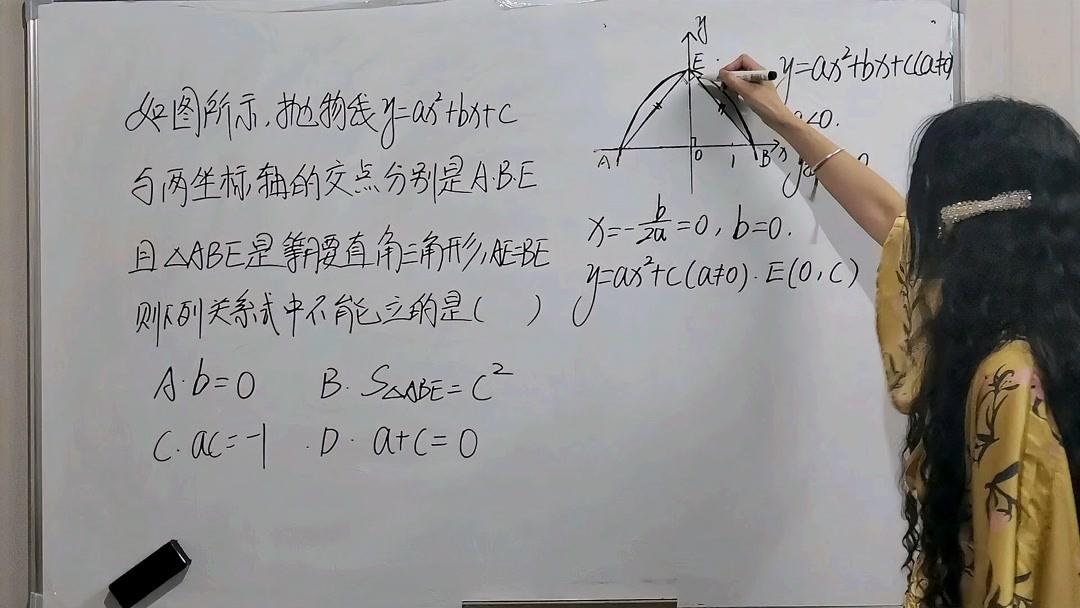 如图所示,抛物线y=ax²+bx+c
与两坐标轴的交点分别是A.B.E
且△ABE是等腰直角三角形,AE=BE
则下列关系式中不能成立的是( )
A.b=0 B.S△ABE=c²
C.ac=-1 .D.a+c=0
y
E
A 0 1 B x
y=ax²+bx+c(a≠0)
<0.
x=-b/2a=0,b=0.
y=ax²+c(a≠0).E(0,c)